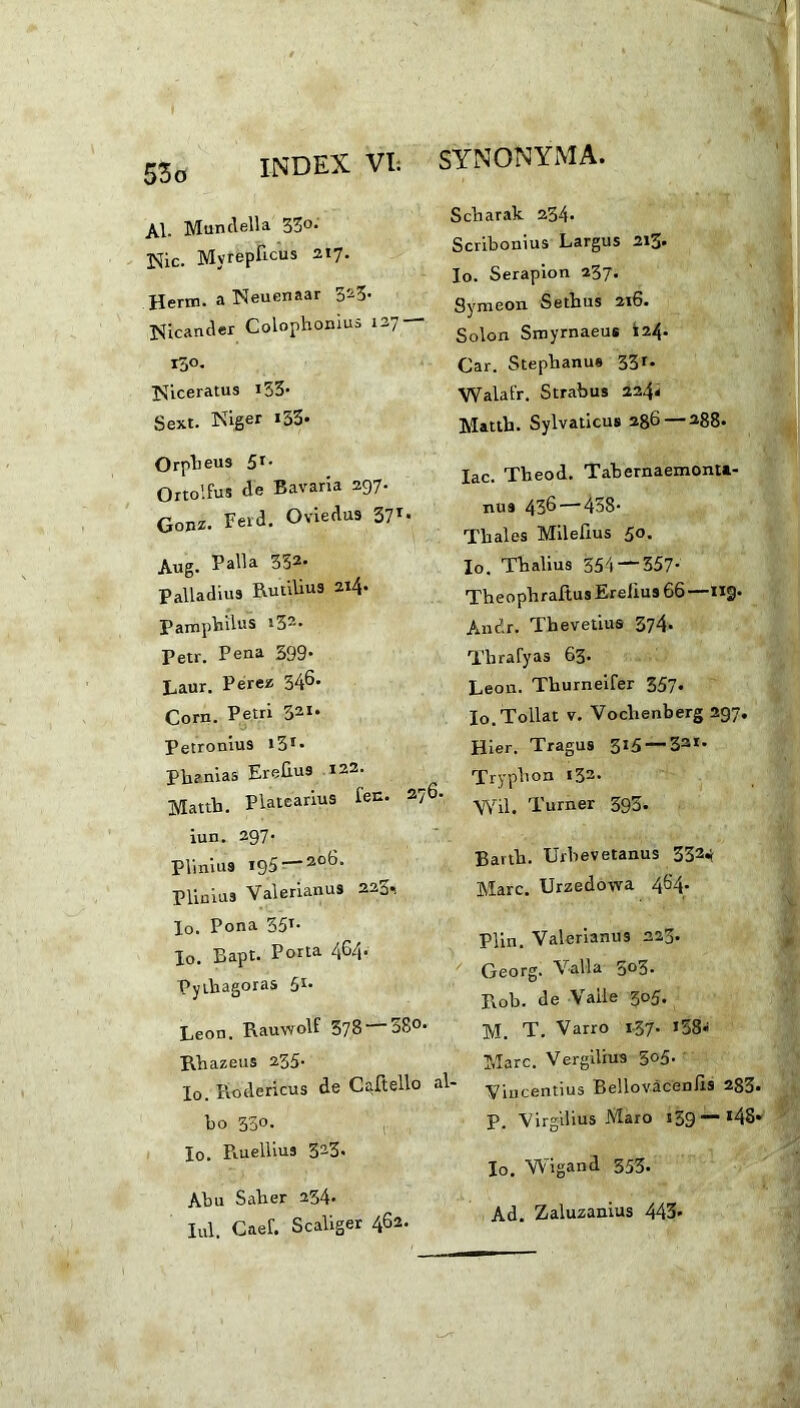 530 INDEX VI. SYNONYMA.
Al. Mundella 330.
Nic. Myrepſicus 217.
Herm. a Neuenaar 323.
Nicander Colophonius 127—
130.
Niceratus 133.
Sext. Niger 133.
Orpheus 51.
Ortolfus de Bavaria 297.
Gonz. Ferd. Oviedus 371.
Aug. Palla 332.
Palladius Rutilius 214.
Pamphilus 132.
Petr. Pena 399.
Laur. Perez 346.
Corn. Petri 321.
Petronius 131.
Phanias Ereſius 122.
Matth. Platearius ſen. 276.
iun. 297.
Plinius 195—206.
Plinius Valerianus 223.
Io. Pona 351.
Io. Bapt. Porta 464.
Pythagoras 51.
Leon. Rauwolf 378—380.
Rhazeus 235.
Io. Rodericus de Caſtello al-
bo 330.
Io. Ruellius 323.
Abu Saher 234.
Iul. Caeſ. Scaliger 462.
Scharak 234.
Scribonius Largus 213.
Io. Serapion 237.
Symeon Sethus 216.
Solon Smyrnaeus 124.
Car. Stephanus 331.
Walafr. Strabus 224.
Matth. Sylvaticus 286—288.
Iac. Theod. Tabernaemonta-
nus 436—438.
Thales Mileſius 50.
Io. Thalius 354—357.
Theophraſtus Ereſius 66—119.
Andr. Thevetius 374.
Thraſyas 63.
Leon. Thurneiſer 357.
Io. Tollat v. Vochenberg 297.
Hier. Tragus 315—321.
Tryphon 132.
Wil. Turner 393.
Barth. Urbevetanus 332.
Marc. Urzedowa 464.
Plin. Valerianus 223.
Georg. Valla 303.
Rob. de Valle 305.
M. T. Varro 137. 138.
Marc. Vergilius 305.
Vincentius Bellovacenſis 283.
P. Virgilius Maro 139—148.
Io. Wigand 353.
Ad. Zaluzanius 443.